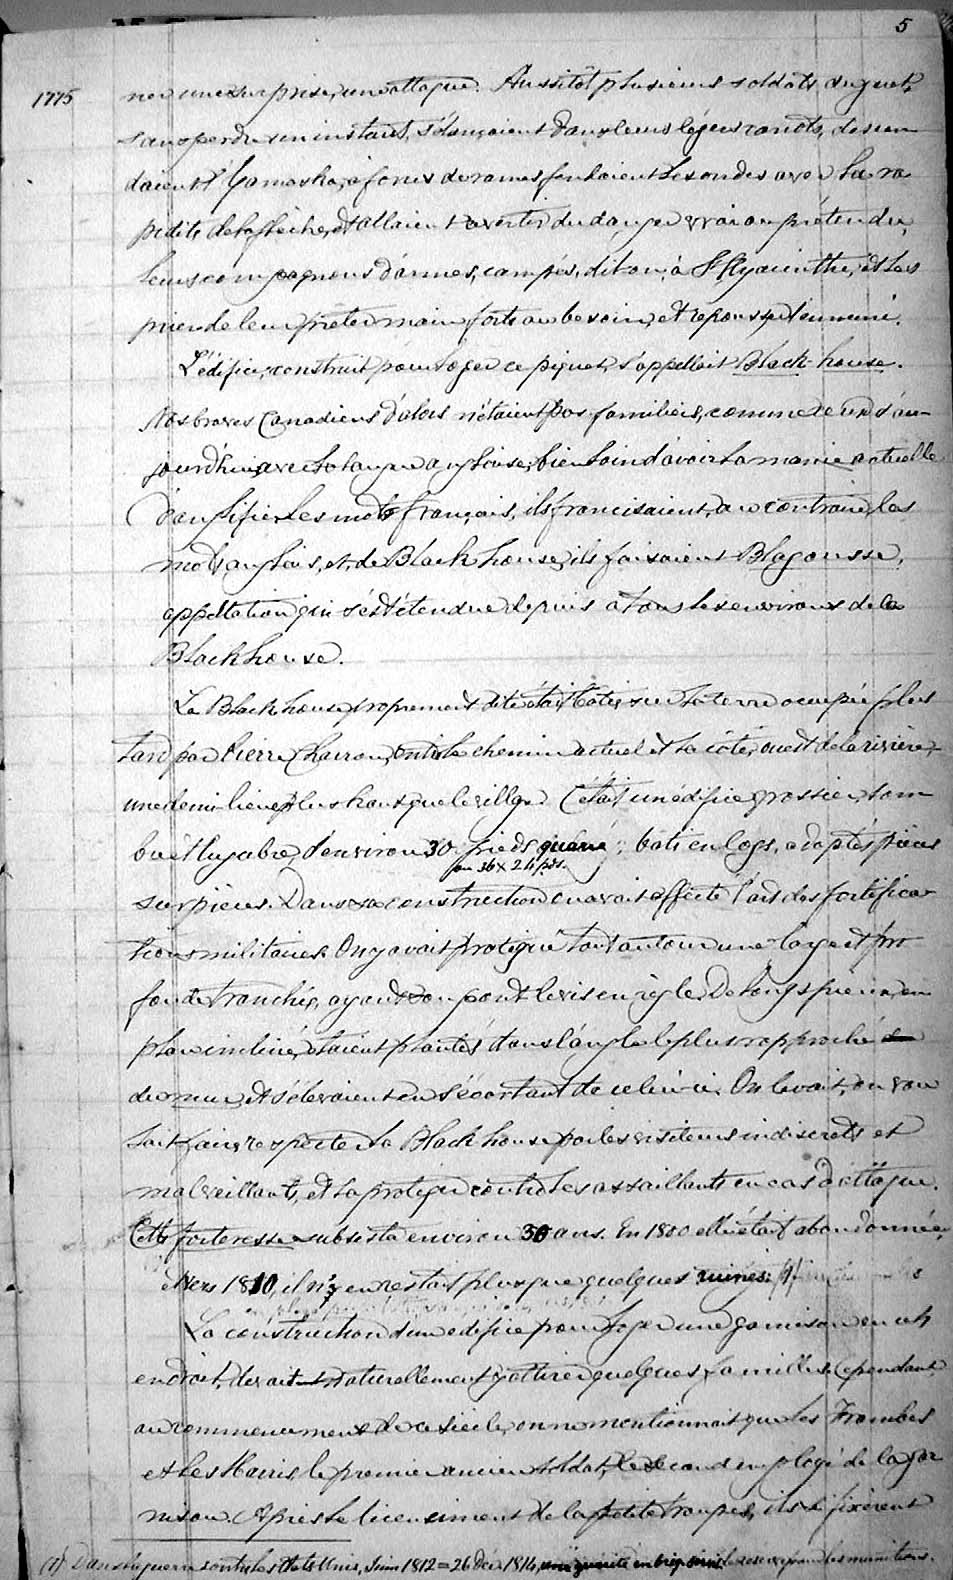 5
1775
ner une surprise, une attaque. Aussitôt plusieurs soldats du guet,
sans perdre un instant, s'élançaient dans leurs légers canots, descen
daient l'Yamaska, à force de rames fendaient les ondes avec la ra
pidité de la flèche, et allaient avertir du danger vrai ou prétendu,
leurs compagnons d'armes, campés, dit-on, à St Hyacinthe, et les
prier de leur prêter main forte au besoin, et repousser l'ennemi.
L'édifice, construit pour loger ce piquet, s'appellait Black-house.
Nos braves Canadiens d'alors n'étaient pas familiers, comme ceux d'au-
jourd'hui, avec la langue anglaise; bien loin d'avoir la manie actuelle
d'anglifier les mots français, ils francisaient, au contraire, les
mots anglais, et, de Black house, ils faisaient Blagousse,
appellation qui s'est étendue depuis à tous les environs de la
Black house.
La Black house proprement dite était bâtie sur la terre occupée plus
tard par Pierre Charron, entre le chemin actuel et la côte, ouest de la rivière,
une demi-lieue plus haut que le village. C'était un édifice grossier, som
bre et lugubre, d'environ 30 pieds quarré, bâti en logs, adaptés pièces
ou 36 x 24 pds.
sur pièces. Dans sa construction on avait affecté l'art des fortifica
tions militaires. On y avait pratiqué tout autour une large et pro
fonde tranchée, ayant son pont levis en règle. De longs pieux, en
plan incliné, étaient plantés dans l'angle le plus rapproché
du mur, et s'élevaient en s'écartant de celui-ci. On levait, on vou
lait faire respecter la Black house par les visiteurs indiscrets et
malveillants, et la protéger contre les assaillants en cas d'attaque.
Cette forteresse subsista environ 30 ans. En 1800 elle était abandonnée,
Vers 1810, il n'y en restait plus que quelques ruines. (1)
La construction d'un édifice pour loger une garnison en cet
endroit, devait naturellement y attirer quelques familles. Cependant,
au commencement de ce siècle, on ne mentionnait que les Frambes
et les Mairis, le premier ancien soldat, le second employé de la gar
nison. Après le licenciment de la petite troupe, ils se fixèrent
(1) Dans la guerre contre les Etats Unis, Juin 1812 = 26 Dec. 1814, les munitions.